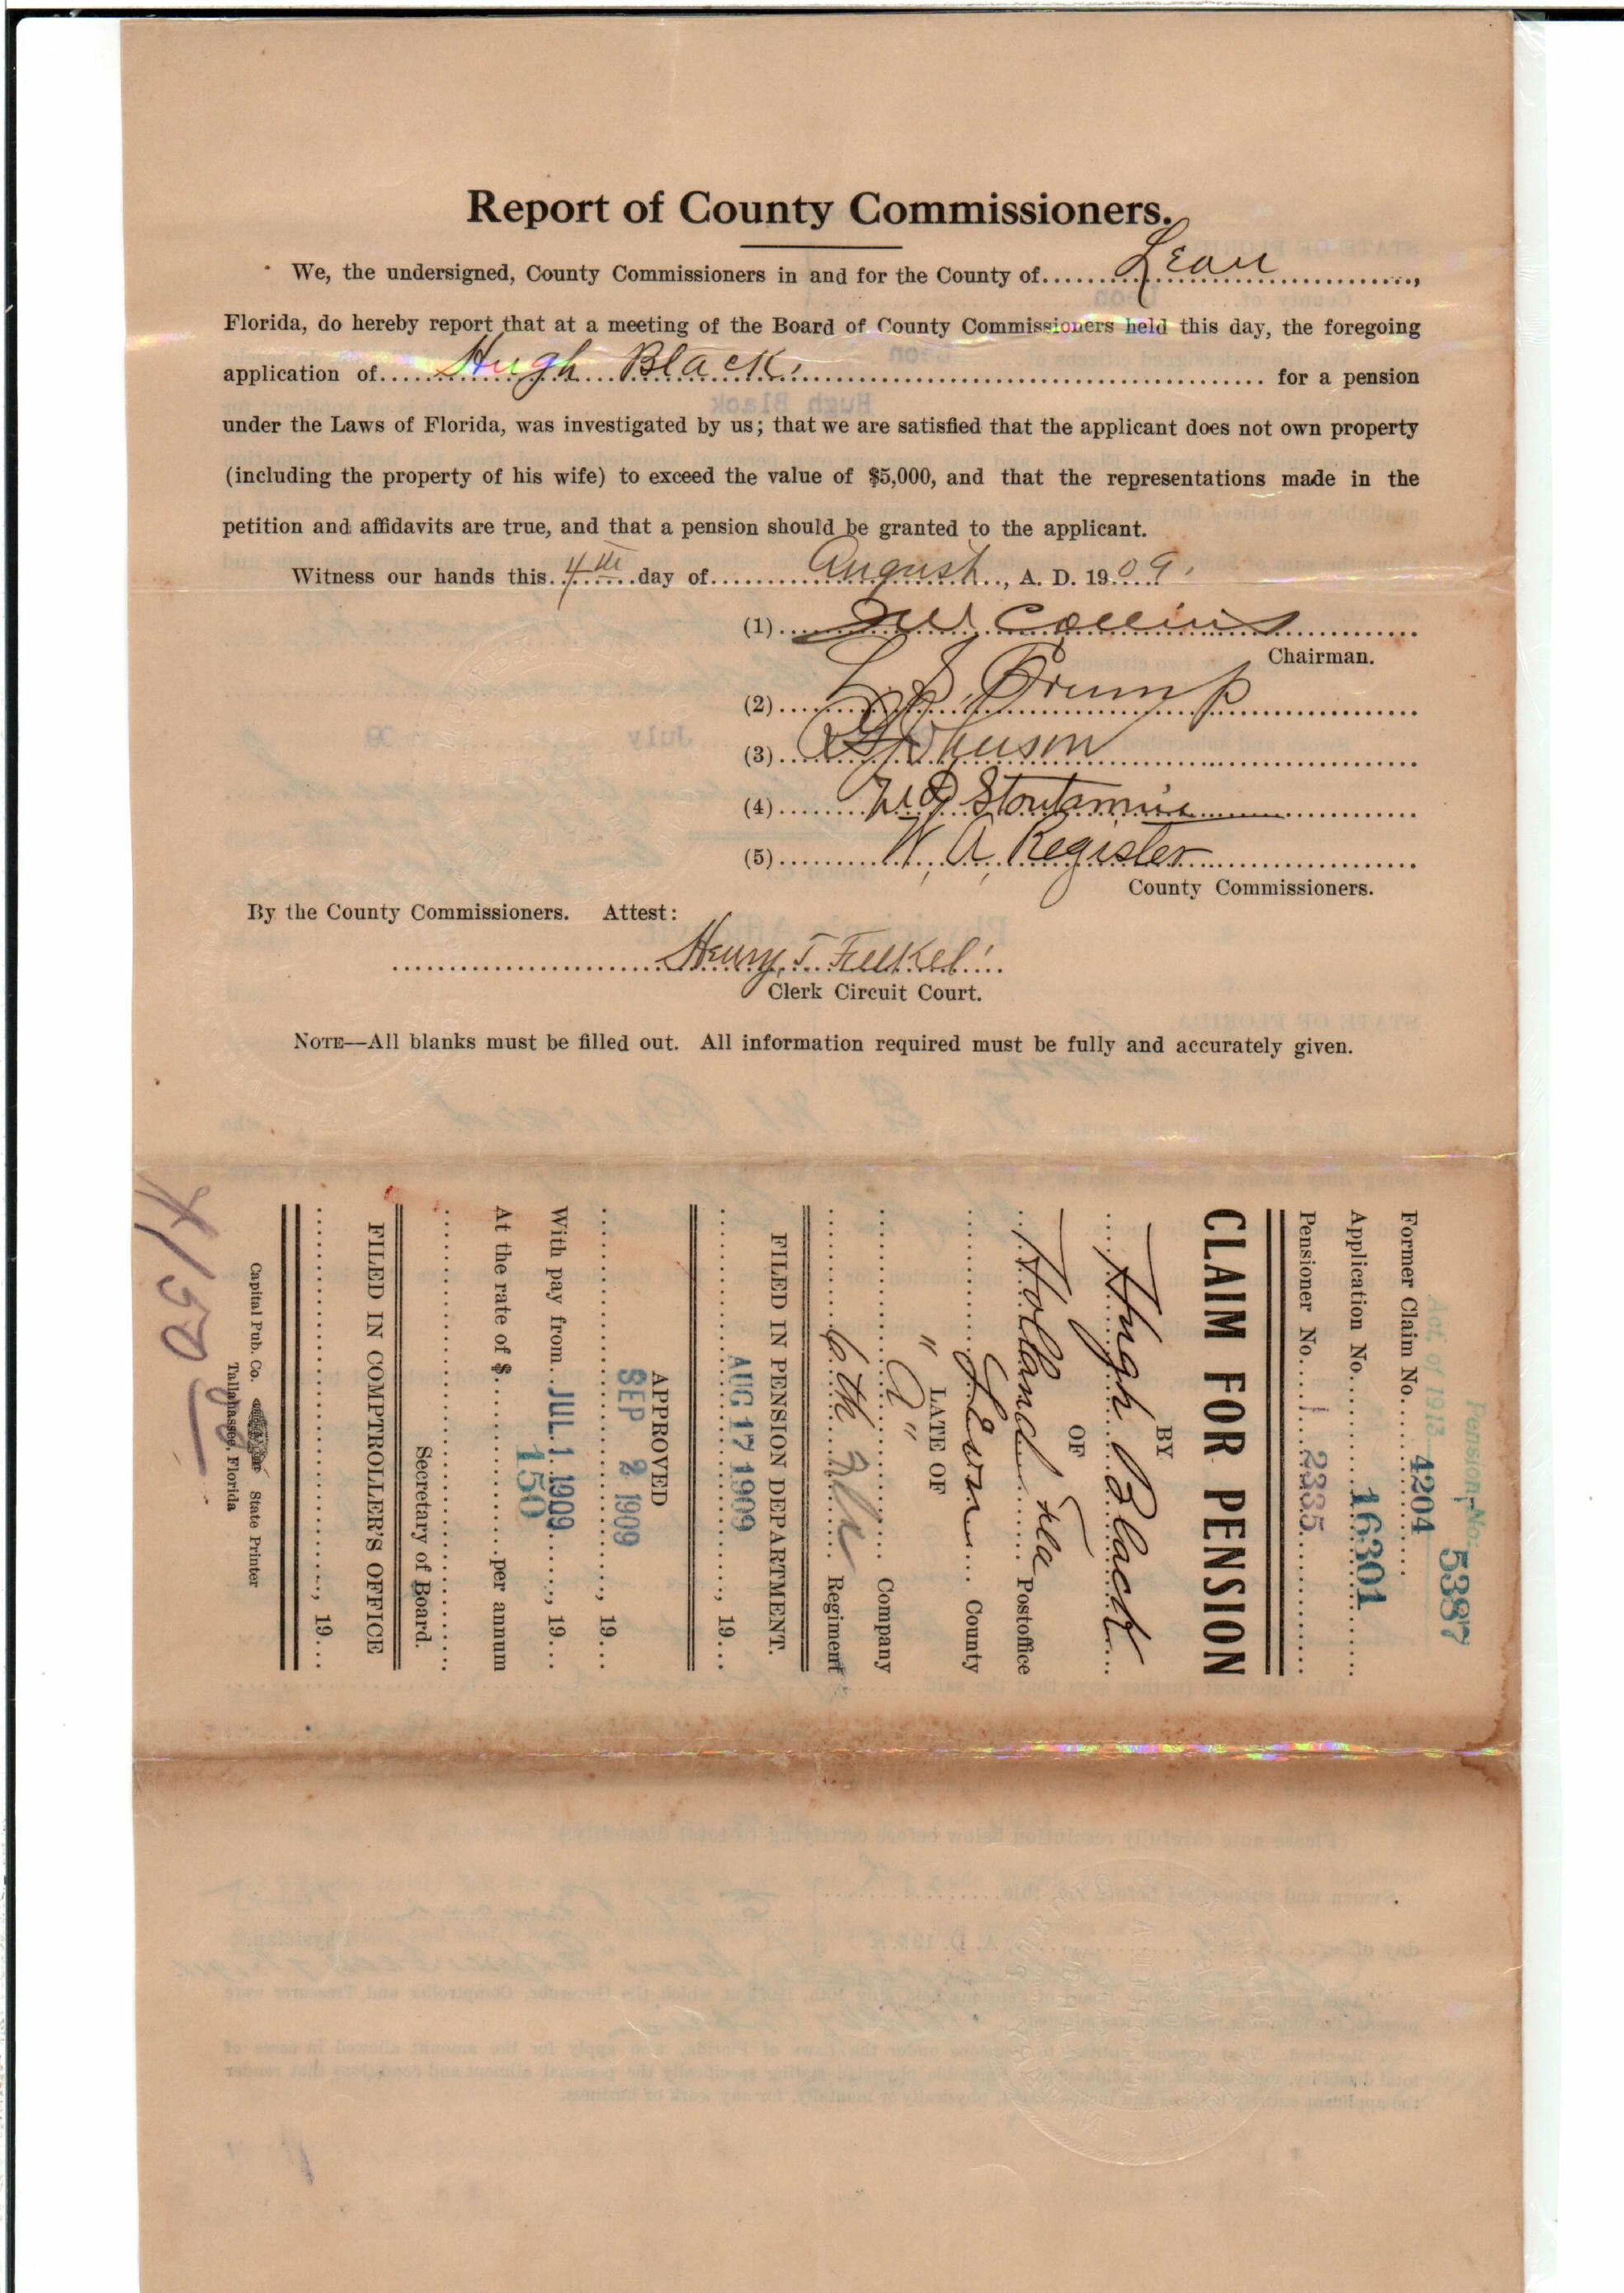 Report of County Commissioners.
We, the undersigned, County Commissioners in and for the County of......Leon..................,
Florida, do hereby report that at a meeting of the Board of County Commissioners held this day, the foregoing
application of......Hugh Black.................. for a pension
under the Laws of Florida, was investigated by us; that we are satisfied that the applicant does not own property
(including the property of his wife) to exceed the value of $5,000, and that the representations made in the
petition and affidavits are true, and that a pension should be granted to the applicant.
Witness our hands this 4th day of August, A. D. 1909.
(1) Collins
Chairman.
(2) L. Crump
(3)
(4) Stoutamire
(5) W. A. Register
County Commissioners.
By the County Commissioners. Attest:
Henry T. Felkel
Clerk Circuit Court.
NOTE—All blanks must be filled out. All information required must be fully and accurately given.
Act of 1913—Pension No. 5387
Former Claim No. 4204
Application No. 16301
Pensioner No. 2335
CLAIM FOR PENSION
BY
Hugh Black
OF
Holland Fla Postoffice
Leon County
LATE OF
Company
6th Regiment
FILED IN PENSION DEPARTMENT.
AUG 17 1909, 19...
APPROVED
SEP 2 1909, 19...
With pay from JUL 1 1909, 19...
At the rate of $ 150 per annum
Secretary of Board.
FILED IN COMPTROLLER'S OFFICE
, 19...
Capital Pub. Co. State Printer
Tallahassee, Florida